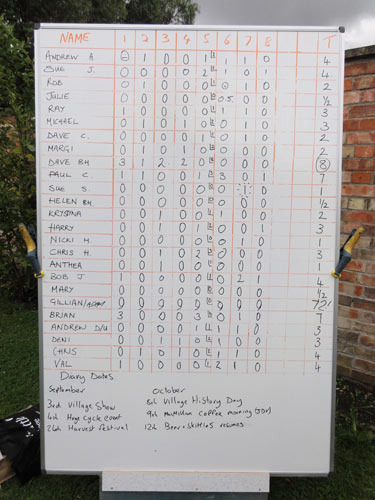 NAME 1 2 3 4 5 6 7 8 T
ANDREW A 0 1 0 0 1 1 1 0 4
SUE J. 0 0 0 0 2 1 0 1 4
ROB 0 1 0 0 0 1 0 2
JULIE 0 0 0 0 0 0.5 0 0 ½
RAY 1 0 0 1 0 1 0 3
MICHAEL 0 1 0 1 0 1 0 3
DAVE C. 0 0 0 1 0 1 0 2
MARGI 0 1 0 1 0 0 0 0 2
DAVE BH 3 1 2 2 0 0 0 0 8
PAUL C. 1 1 0 0 1 3 0 1 7
SUE S. 0 0 0 0 0 1 0 1
HELEN BH 0 0 0 0 0 0 0 ½
KRYSTYNA 0 1 0 0 1 0 0 2
HARRY 0 0 1 0 1 0 1 0 3
NICKI H. 0 0 0 0 0 0 0 1 1
CHRIS H. 0 0 1 0 2 0 0 0 3
ANTHEA 0 0 1 0 0 0 0 0 1
BOB J. 1 0 0 0 0 0 2 1 4
MARY 0 0 0 0 0 0 0 0 ½
GILLIAN 0 0 0 0 0 0 0 0
BRIAN 3 0 0 0 3 0 1 0 7
ANDREW D/U 0 0 0 0 1 1 1 0 3
DENI 0 0 1 1 0 1 0 0 3
CHRIS 0 1 0 1 0 1 1 0 4
VAL 1 0 0 0 0 2 1 0 4
Diary Dates
September October
3rd Village Show 8th Village History Day
4th Hogs Cycle event 9th McMillan Coffee morning
24th Harvest festival 12th Beer & skittles resumes